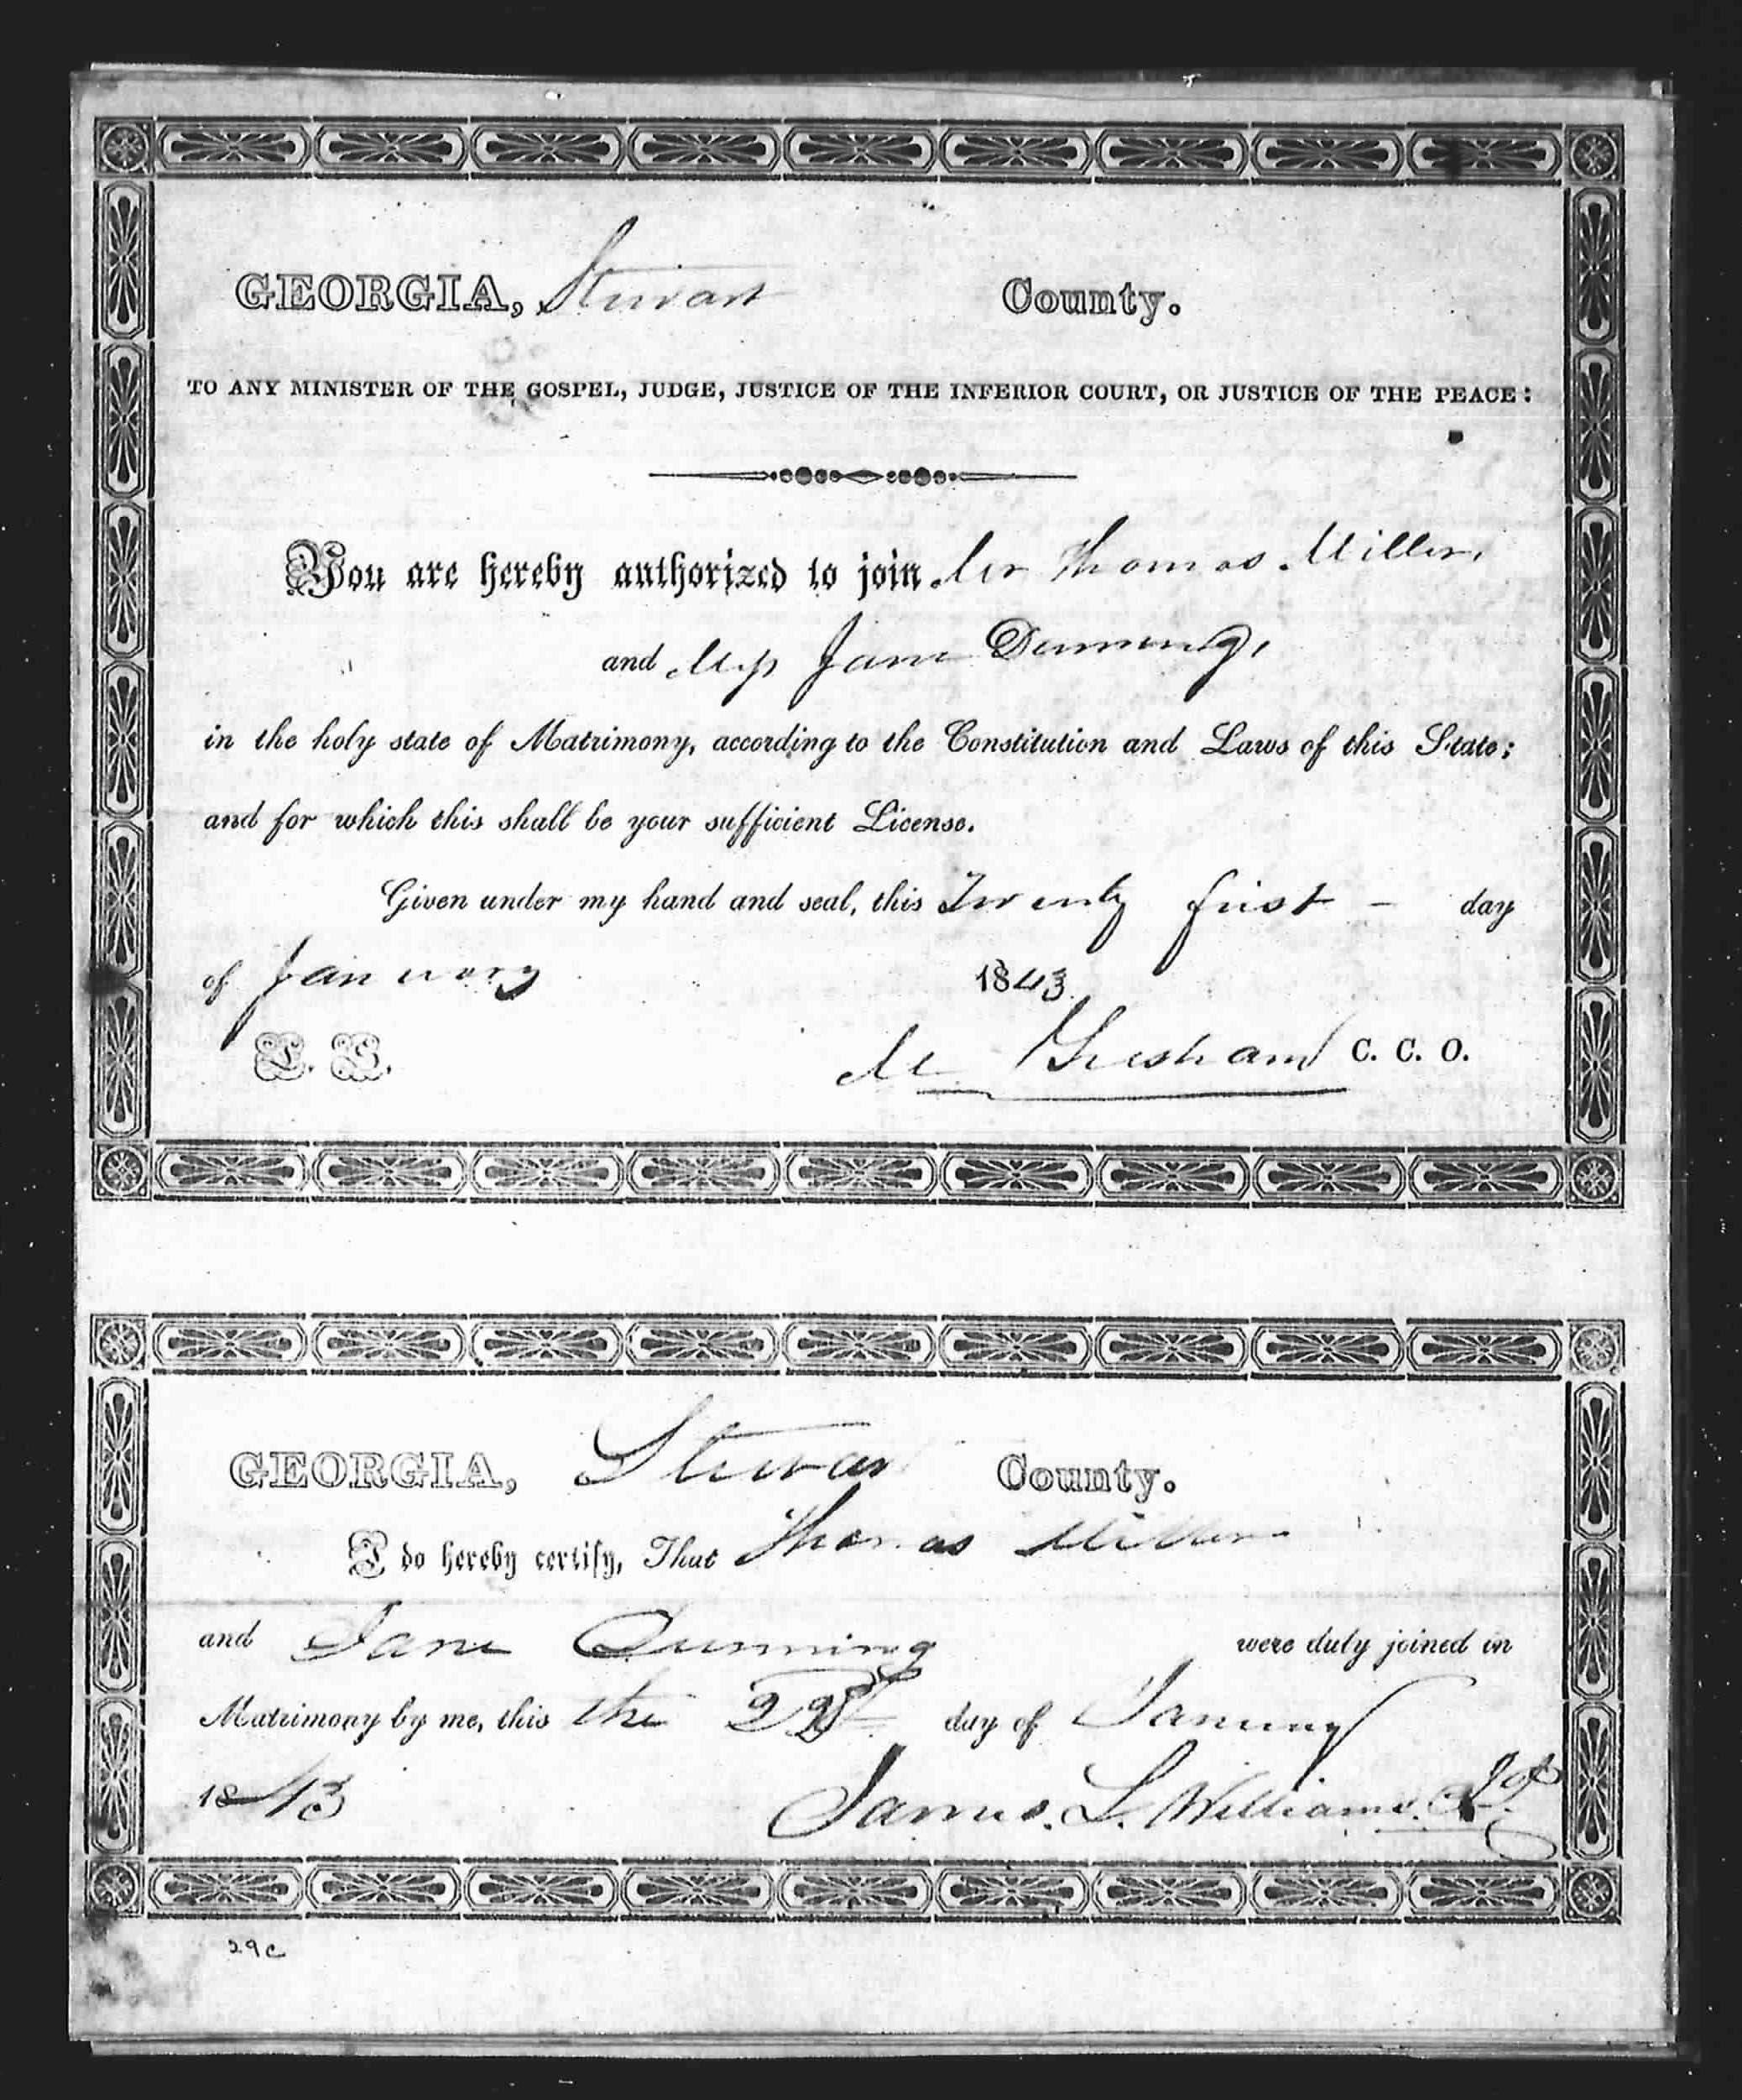 GEORGIA, Stewart County.
TO ANY MINISTER OF THE GOSPEL, JUDGE, JUSTICE OF THE INFERIOR COURT, OR JUSTICE OF THE PEACE:
You are hereby authorized to join Mr Thomas Miller,
and Miss Jane Dunning,
in the holy state of Matrimony, according to the Constitution and Laws of this State;
and for which this shall be your sufficient License.
Given under my hand and seal, this Twenty first - day
of January 1843
L. S. M Gresham C. C. O.
GEORGIA, Stewart County.
I do hereby certify, That Thomas Miller
and Jane Dunning were duly joined in
Matrimony by me, this the 22 day of January
1843 James. L. Williams.
29c